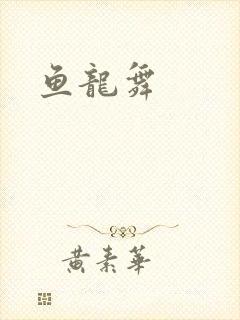 鱼龍舞
黄素華